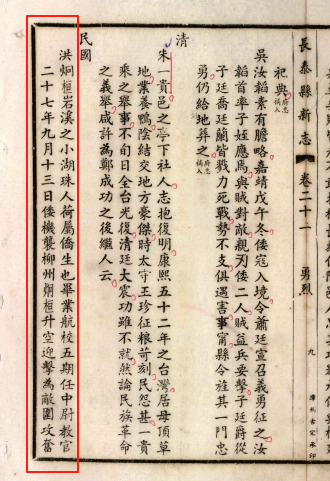 長泰縣新志 卷二十一 勇烈 九
祀典府志稱入
吳汝韜素有膽略嘉靖戊午冬倭寇入境令蕭廷宣召義勇征之汝
韜首率子姪應募與賊對敵親刃倭二人賊益兵要擊子廷爵從
子廷喬廷蘭皆戮力死戰勢不支俱遇害事甯縣令旌其一門忠
勇仍給地葬之府志稱入
清
朱一貴邑之亭下社人志抱復明康熙五十二年之台灣居母頂草
地業養鴨陰結交地方豪傑時太守王珍征糧苛刻民怨甚一貴
乘之舉事不旬日全台光復清廷大震功雖不就然論民族革命
之義舉咸許為鄭成功之後繼人云
民國
洪炯桓岩溪之小湖珠人荷屬僑生也畢業航校五期任中尉教官
二十七年九月十三日倭機襲柳州炯桓升空迎擊為敵圍攻奮